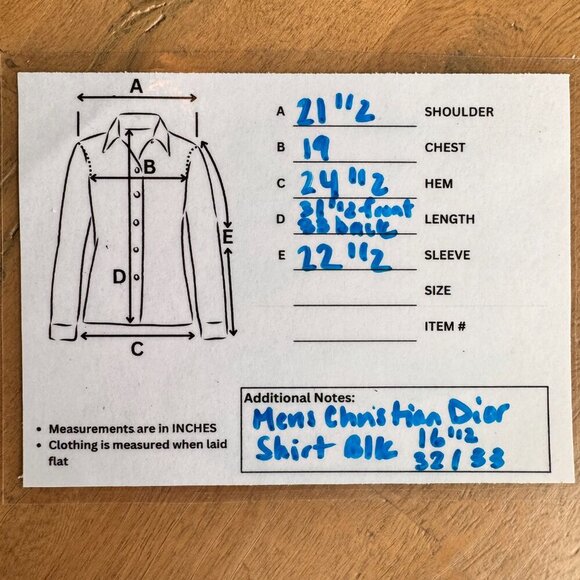 A
B
E
D
C
A 21 1/2 SHOULDER
B 19 CHEST
C 24 1/2 HEM
D 31 1/2 front LENGTH
33 back
E 22 1/2 SLEEVE
SIZE
ITEM #
• Measurements are in INCHES
• Clothing is measured when laid
flat
Additional Notes:
Mens Christian Dior
Shirt Blk 16 1/2
32/33